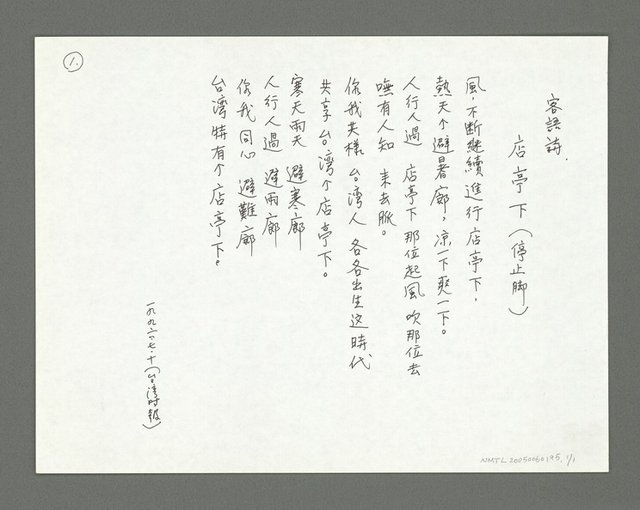 1.
客語詩.
店亭下(停止脚)
風,不断継續進行店亭下,
熱天个避暑廊,凉一下爽一下。
人行人過 店亭下 那位起風 吹那位去
嘸有人知 来去脈。
你我共樣 台湾人 各各出生这時代
共享台湾个店亭下。
寒天雨天 避寒廊
人行人過 避雨廊
你我同心 避難廊
台湾特有个店亭下。
一九九六.七.十(台湾时報)
NMTL20050060195, 1/1